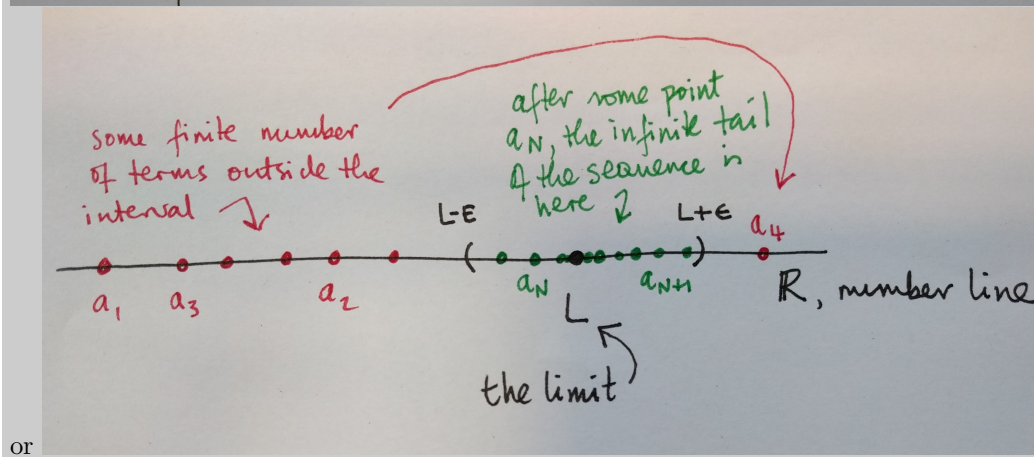 some finite number
of terms outside the
interval
after some point
aN, the infinite tail
of the sequence is
here
L-ε
L+ε
a4
a1
a3
a2
aN
aN+1
L
R, number line
the limit
or